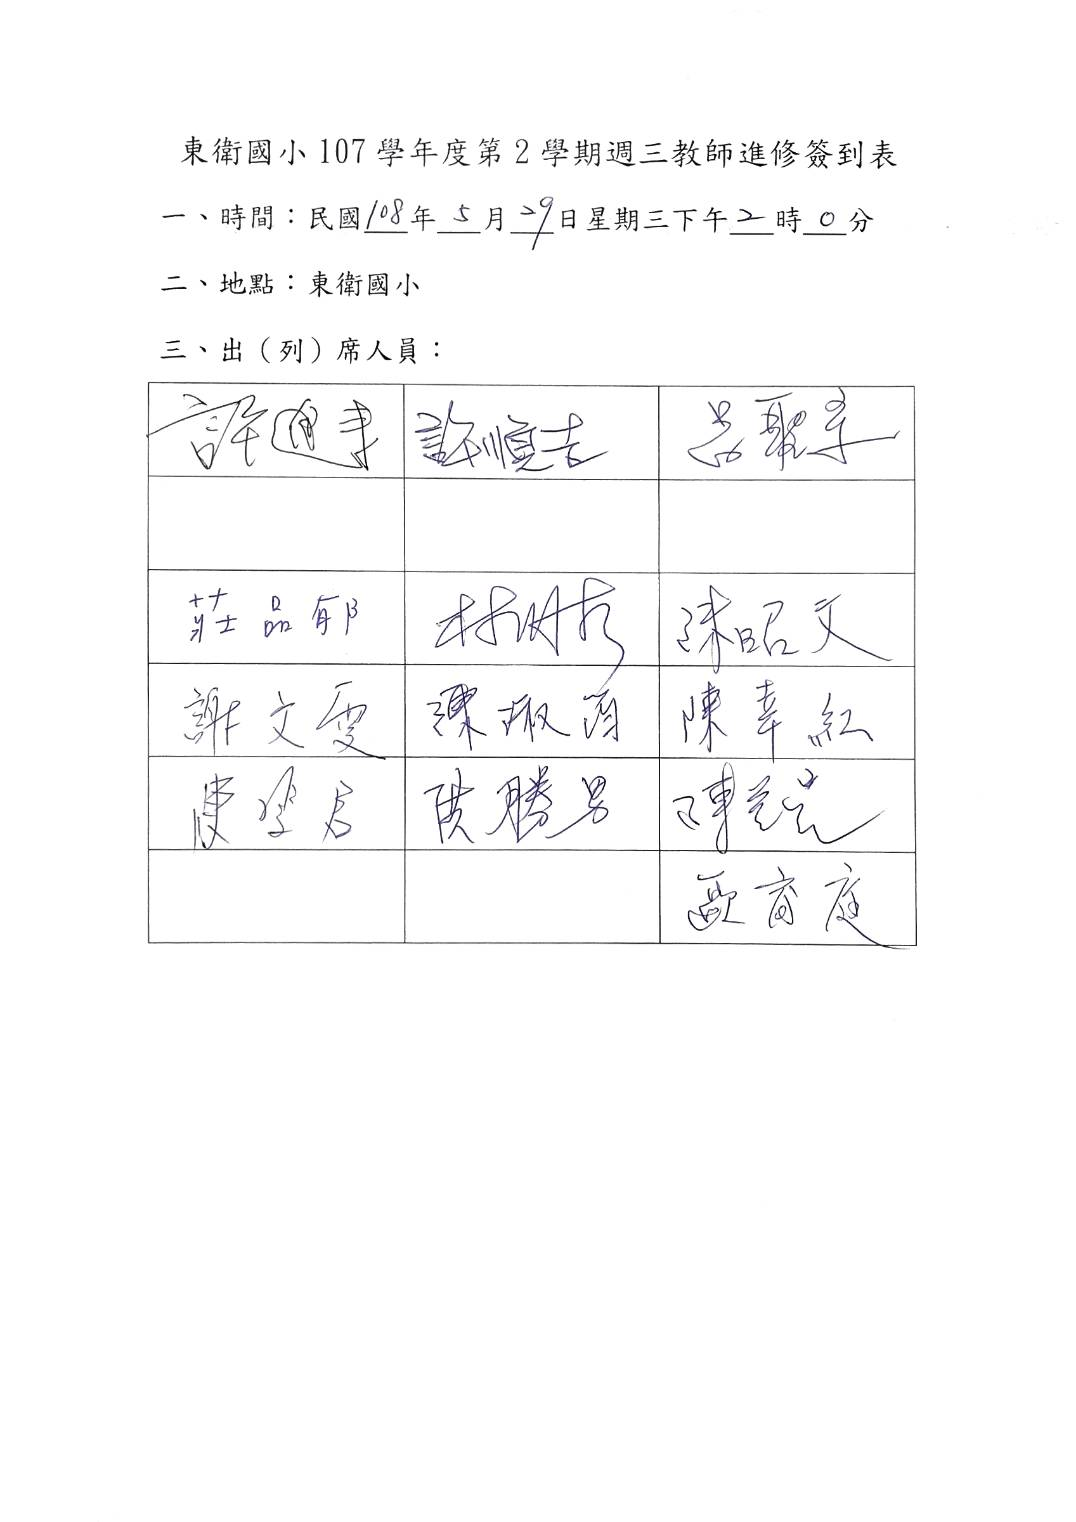 東衛國小107學年度第2學期週三教師進修簽到表
一、時間：民國108年5月29日星期三下午2時0分
二、地點：東衛國小
三、出（列）席人員：
許 許順吉 呂
莊品郁 林 陳昭文
謝文雯 陳淑 陳幸紅
陳 君 洪勝男 陳
歐育庭